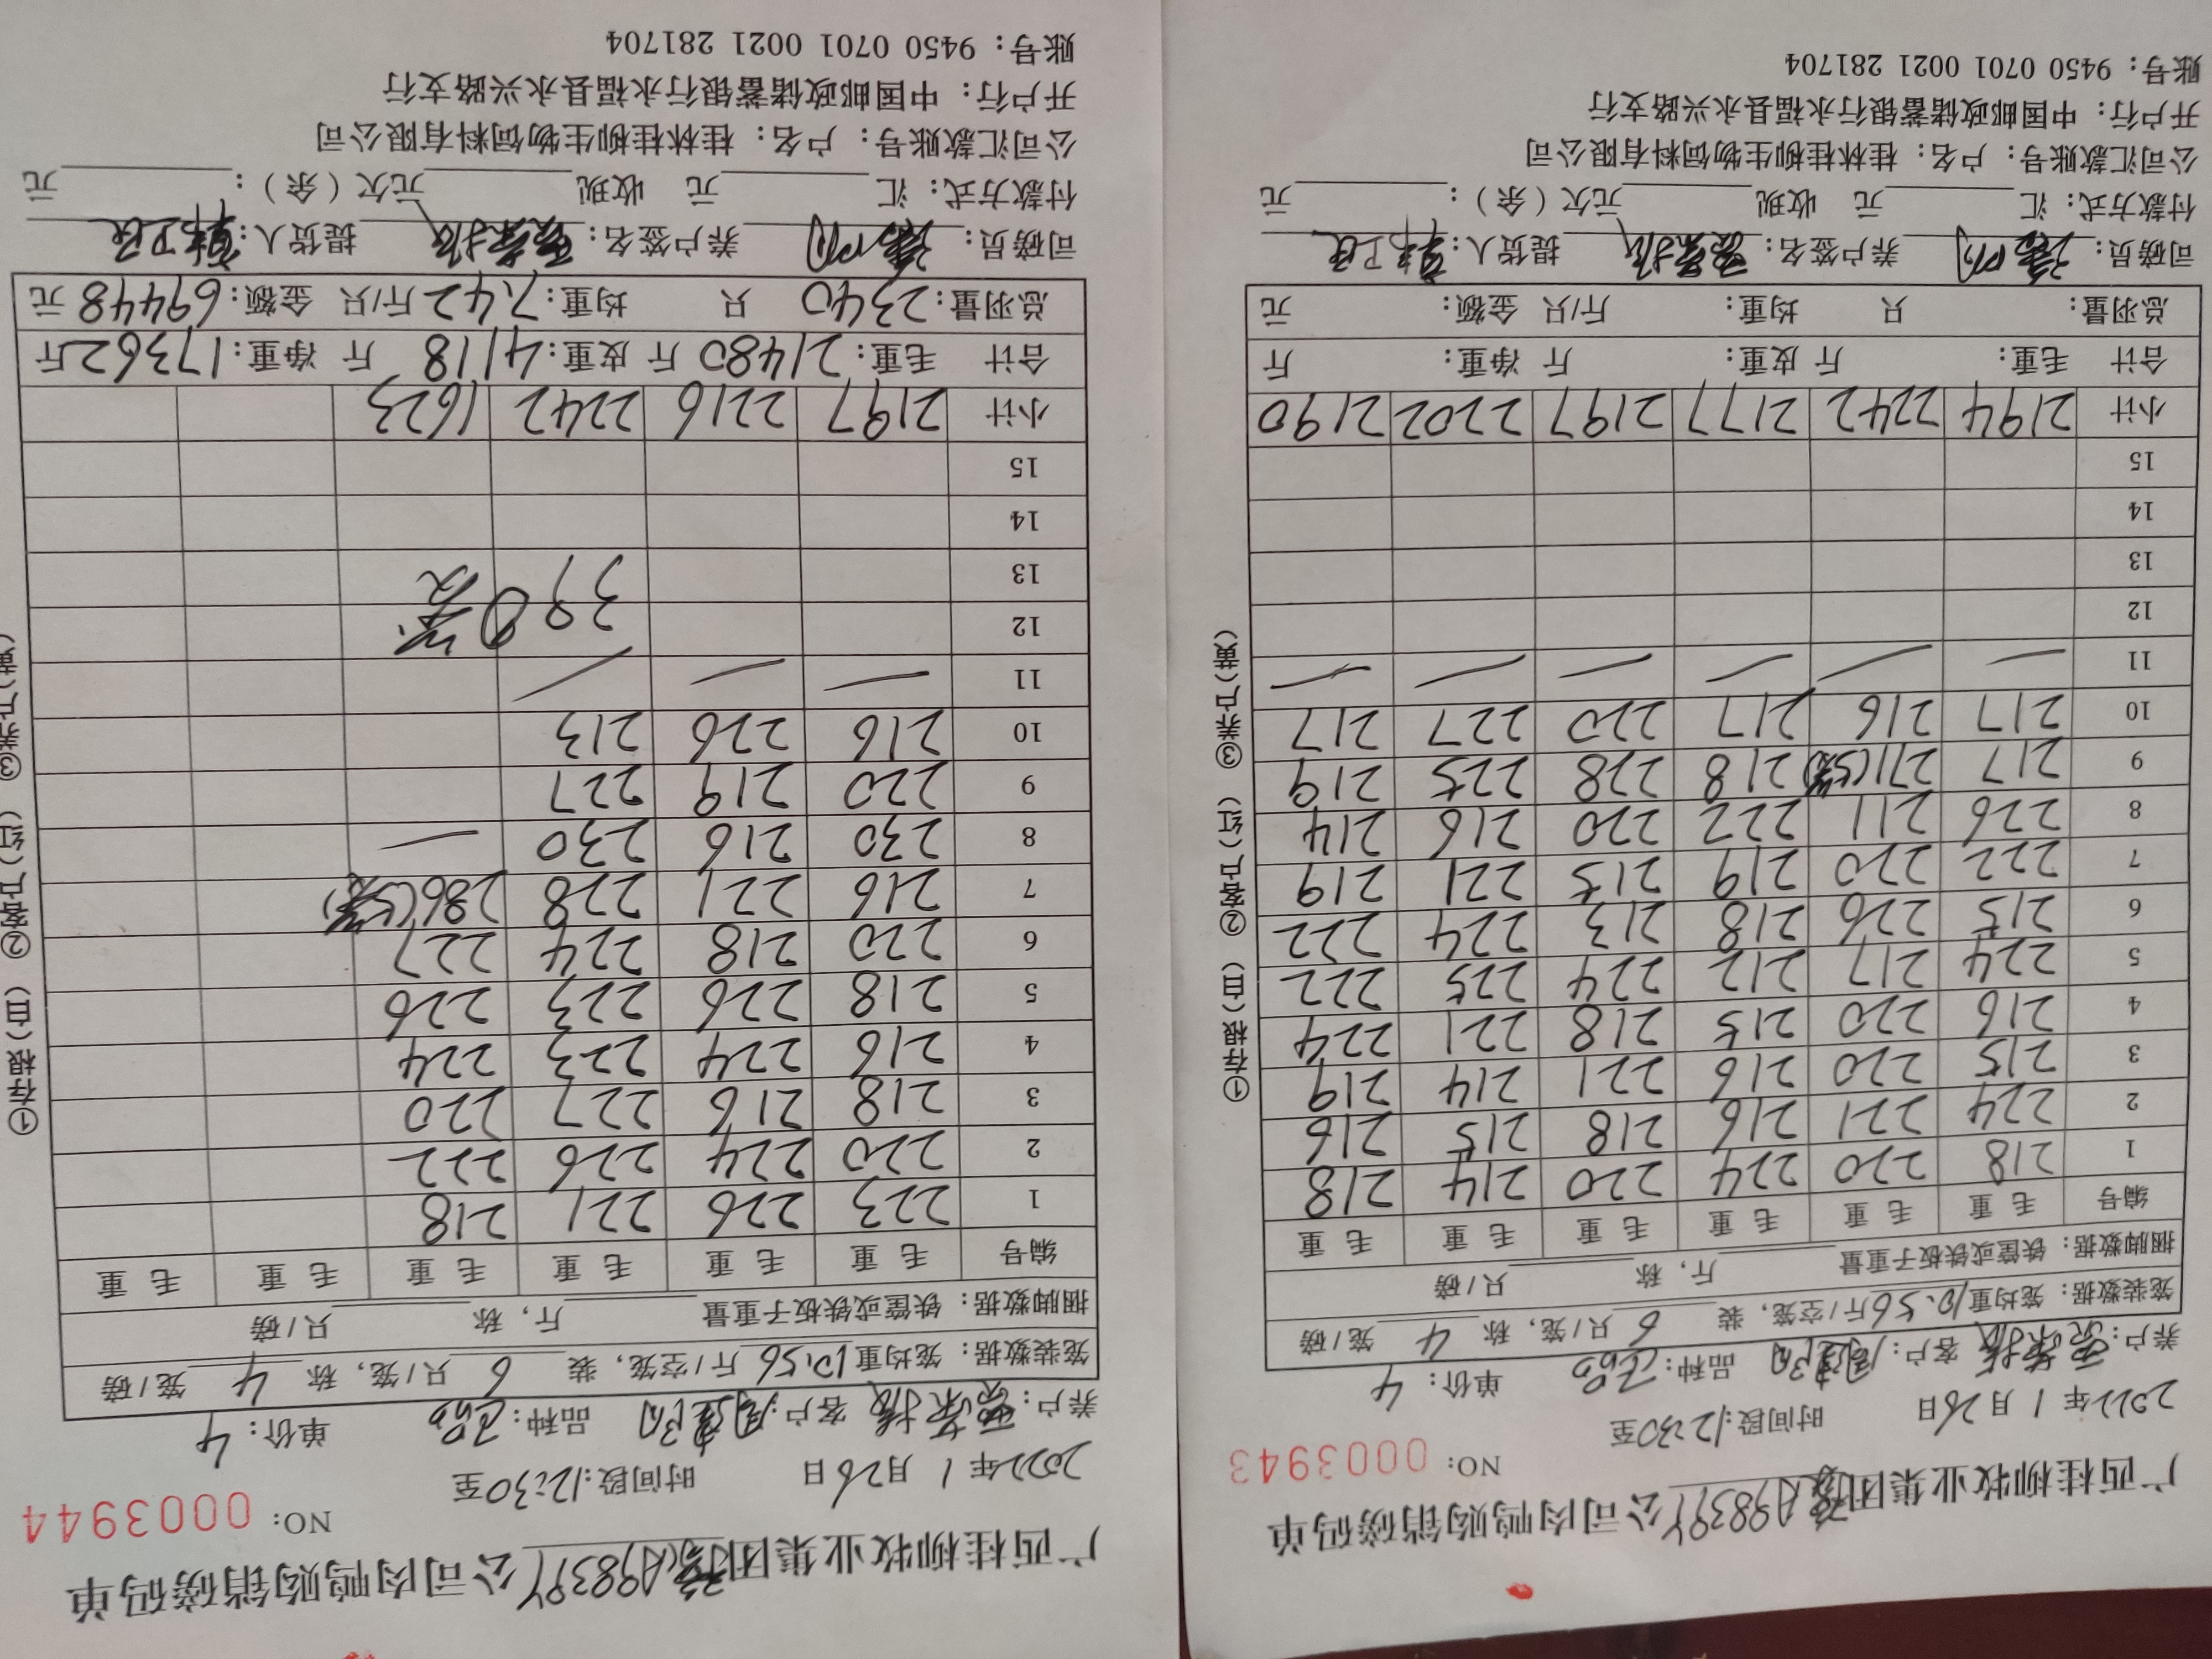 广西桂柳牧业集团 A9839Y 公司肉鸭购销磅码单
NO: 0003943
2022年 1 月26日 时间段:12:30至
养户: 客户: 品种: 单价: 4
笼装数据: 笼均重10.56斤/空笼, 装 6 只/笼, 称 4 笼/磅
捆脚数据: 铁筐或铁板子重量 斤, 称 只/磅
编号 毛重 毛重 毛重 毛重 毛重 毛重
1 218 220 224 220 214 218
2 224 221 216 218 215 216
3 215 220 216 221 214 219
4 216 220 215 218 221 224
5 224 217 212 224 225 222
6 215 226 218 213 224 222
7 222 220 219 215 221 219
8 226 211 222 220 216 214
9 217 271(5笼) 218 228 225 219
10 217 216 217 220 227 217
11 — — — — — —
12
13
14
15
小计 2194 2242 2177 2197 2202 2190
合计 毛重: 斤 皮重: 斤 净重: 斤
总羽量: 只 均重: 斤/只 金额: 元
司磅员: 养户签名: 提货人:
付款方式: 汇 元 收现 元欠(余): 元
公司汇款账号: 户名: 桂林桂柳生物饲料有限公司
开户行: 中国邮政储蓄银行永福县永兴路支行
账号: 9450 0701 0021 281704
①存根(白) ②客户(红) ③养户(黄)
广西桂柳牧业集团 A9839Y 公司肉鸭购销磅码单
NO: 0003944
2022年 1 月26日 时间段:12:30至
养户: 客户: 品种: 单价: 4
笼装数据: 笼均重10.56斤/空笼, 装 6 只/笼, 称 4 笼/磅
捆脚数据: 铁筐或铁板子重量 斤, 称 只/磅
编号 毛重 毛重 毛重 毛重 毛重 毛重
1 223 226 221 218
2 220 224 226 222
3 218 216 227 220
4 216 224 223 224
5 218 226 223 226
6 220 218 224 227
7 216 221 228 286(5笼)
8 230 216 230 —
9 220 219 227
10 216 226 213
11 — — —
12 390笼
13
14
15
小计 2197 2216 2242 1623
合计 毛重: 21480 斤 皮重: 4118 斤 净重: 17362 斤
总羽量: 2340 只 均重: 7.42 斤/只 金额: 69448 元
司磅员: 养户签名: 提货人:
付款方式: 汇 元 收现 元欠(余): 元
公司汇款账号: 户名: 桂林桂柳生物饲料有限公司
开户行: 中国邮政储蓄银行永福县永兴路支行
账号: 9450 0701 0021 281704
①存根(白) ②客户(红) ③养户(黄)